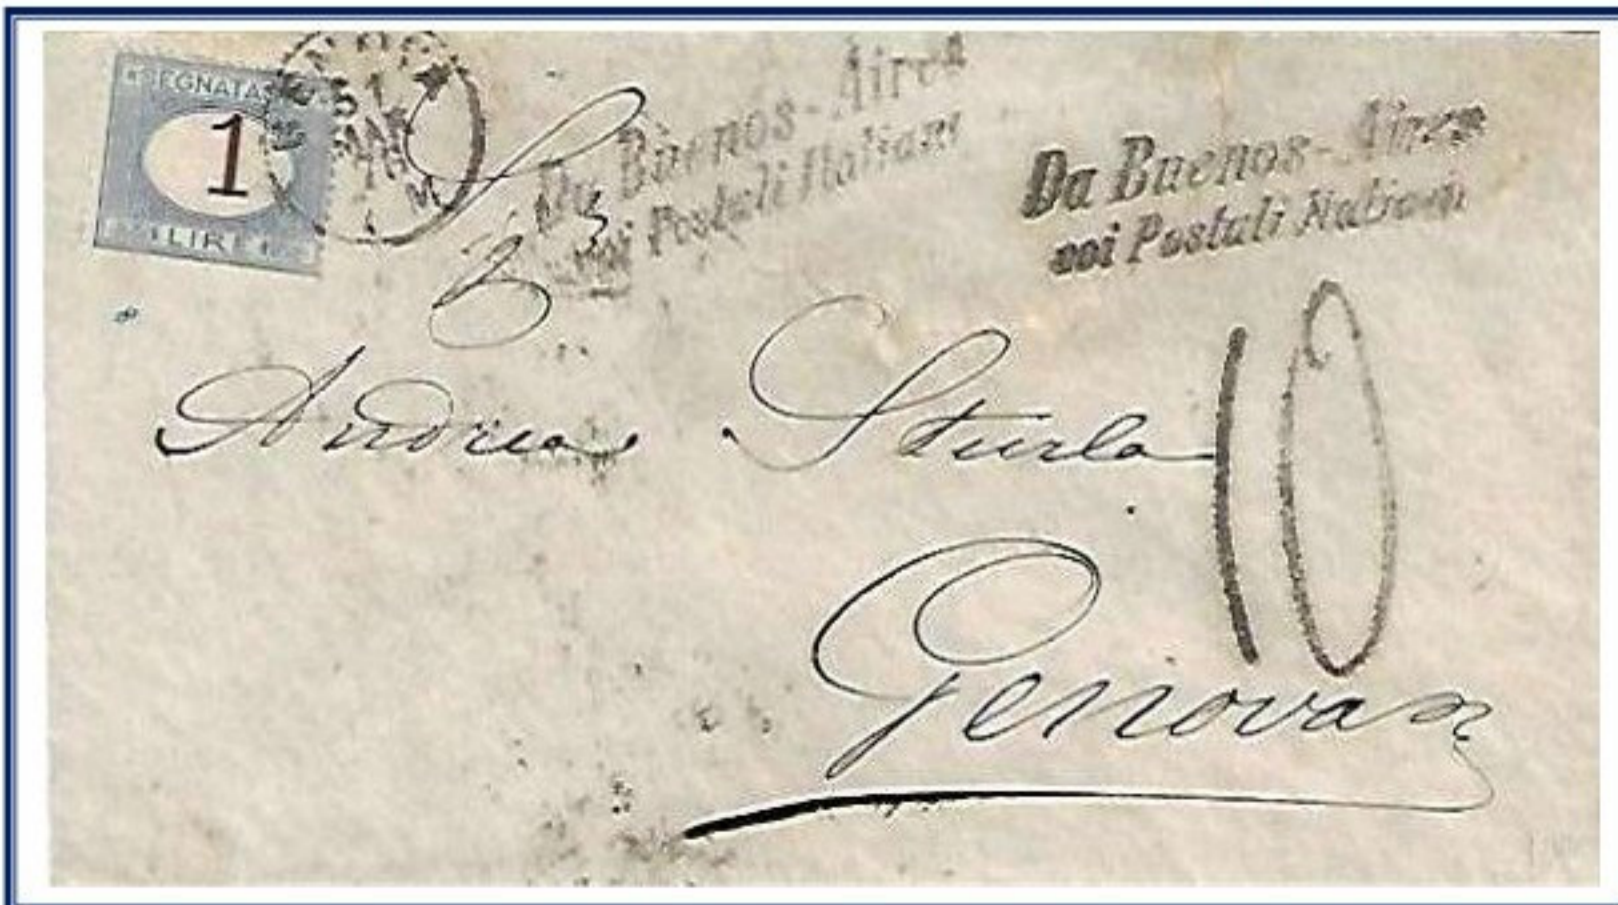 SEGNATAS
1
LIRE
Da Buenos-Aires
coi Postali Italiani
Da Buenos-Aires
coi Postali Italiani
S
B
10
Andrea Sturla
Genova